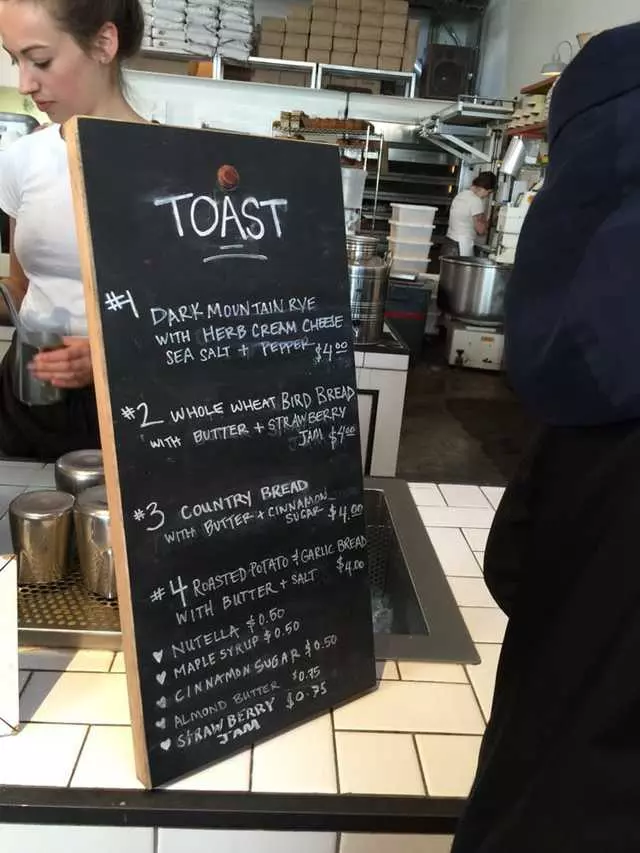 TOAST
#1 DARK MOUNTAIN RYE
WITH HERB CREAM CHEESE
SEA SALT + PEPPER $4.00
#2 WHOLE WHEAT BIRD BREAD
WITH BUTTER + STRAWBERRY
JAM $4.00
#3 COUNTRY BREAD
WITH BUTTER + CINNAMON
SUGAR $4.00
#4 ROASTED POTATO & GARLIC BREAD
WITH BUTTER + SALT $4.00
♥ NUTELLA $0.50
♥ MAPLE SYRUP $0.50
♥ CINNAMON SUGAR $0.50
♥ ALMOND BUTTER $0.75
♥ STRAWBERRY $0.75
JAM